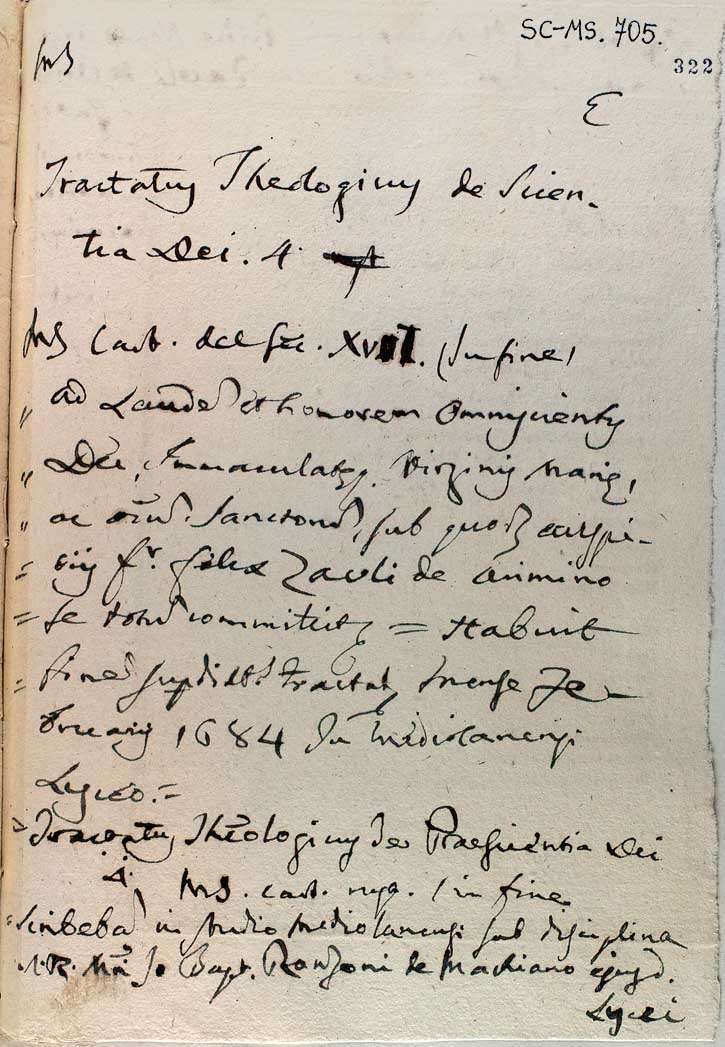 SC-MS. 705.
322
MS
E
Tractatus Theologicus de Scien-
tia Dei. 4.
MS Cart. del sec. XVII. (In fine)
" ad Laudē et honorem Omniscientis
" Dei, Immaculatę Virginis Marię,
" ac oīū Sanctorū, sub quorū auspi-
= ciis fr. Felix Zauli de Arimino
= se totū committit = Habuit
= finē tractat, mense Fe-
bruarii 1684 In Mediolanensi
Lyceo. =
= Tractatus Theologicus de Praescientia Dei
4. MS. cart. in fine
= Scribebā in studio Mediolanensi sub disciplina
Jo Bapt. Ronzoni de Machiano ejusd.
Lycei